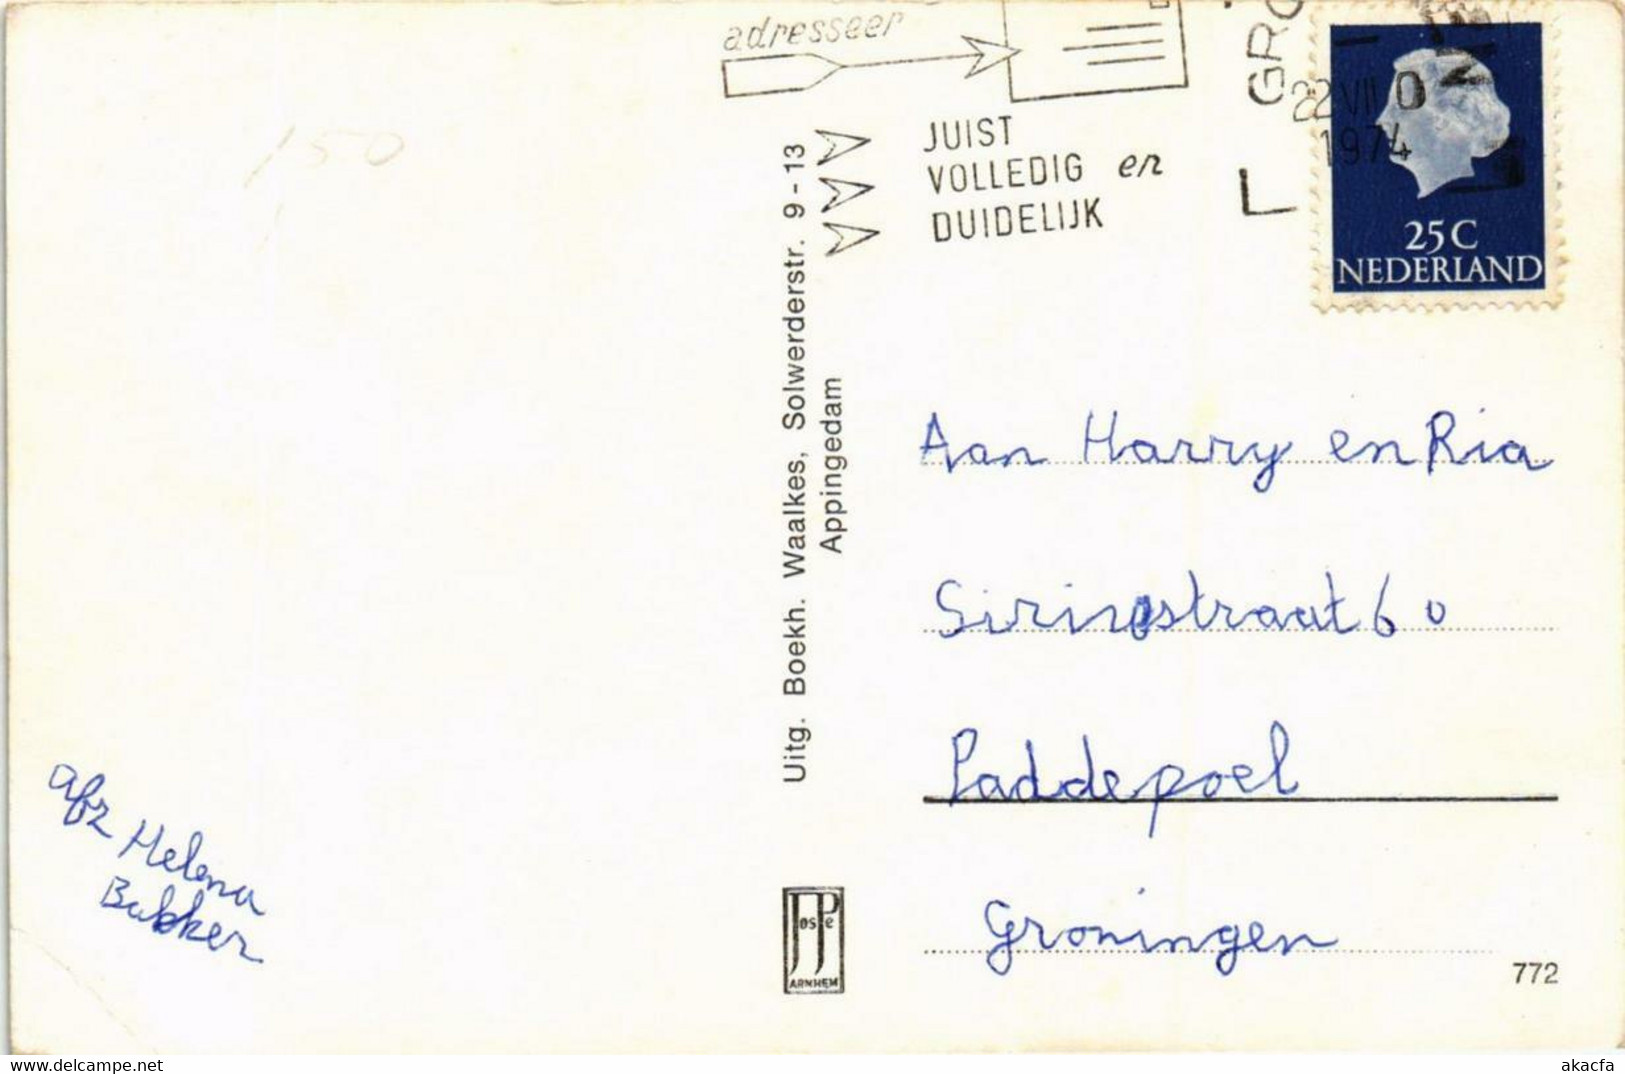 adresseer
JUIST
VOLLEDIG en
DUIDELIJK
22 VII 0
1974
25 C
NEDERLAND
150
Uitg. Boekh. Waalkes, Solwerderstr. 9 - 13
Appingedam
Aan Harry en Ria
60
Paddepoel
Groningen
afz Helena
JosPe
ARNHEM
772
akacfa
www.delcampe.net